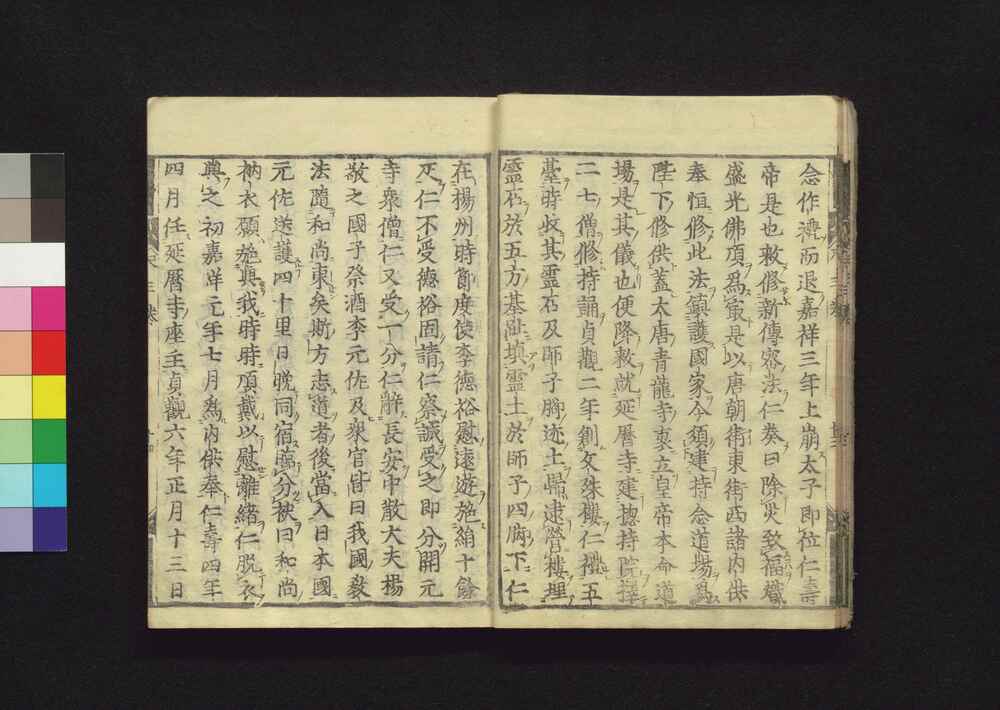 念作禮而退嘉祥三年上崩太子即位仁壽
帝是也敕修新傳密法仁奏曰除災致福熾
盛光佛頂爲最是以唐朝街東街西諸内供
奉恒修此法鎮護國家今須建持念道場爲
陛下修供蓋大唐青龍寺裏立皇帝本命道
場是其儀也便降敕就延曆寺建摠持院擇
二七僧修持誦貞觀二年創文殊樓仁禮五
臺時收其靈石及師子脚迹土歸逮營樓埋
靈石於五方基趾填靈土於師子四脚下仁
在揚州時節度使李德裕慰遠遊施絹十餘
疋仁不受德裕固請仁察誠受之即分開元
寺衆僧仁又受一分仁辭長安中散大夫楊
敬之國子祭酒李元佐及衆官皆曰我國教
法隨和尚東矣斯方志道者後當入日本國
元佐送護四十里日晚同宿臨分袂曰和尚
衲衣願施與我時時頂戴以慰離緒仁脱衣
與之初嘉祥元年七月爲内供奉仁壽四年
四月任延曆寺座主貞觀六年正月十三日